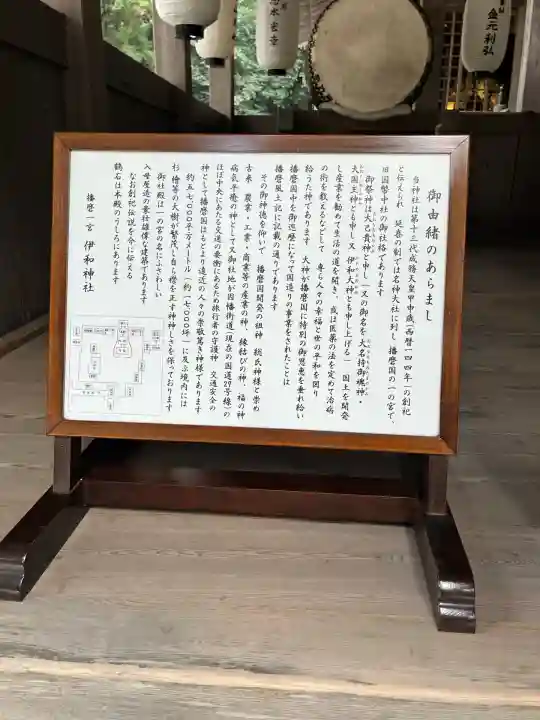 御由緒のあらまし
当神社は第十三代成務天皇甲申歳(西暦一四四年)の創祀
と伝えられ 延喜の制では名神大社に列し 播磨国の一の宮で、
旧国幣中社の御社格であります
御祭神は大己貴神と申し(又の御名を大名持御魂神・
大国主神とも申し又 伊和大神とも申し上げる) 国土を開発
し産業を勧めて生活の道を開き、或は医薬の法を定めて治病
の術を教えるなどして 専ら人々の幸福と世の平和を図り
給うた神であります 大神が播磨国に特別の御恩恵を垂れ給い
播磨国中を御巡歴になって国造りの事業をされたことは
播磨風土記に記載の通りであります
その御神徳を仰いで 播磨国開発の祖神 総氏神様と崇め
古来 農業・工業・商業等の産業の神、縁結びの神、福の神
病気平癒の神として又御社地が因幡街道(現在の国道29号線)の
ほぼ中央にあたる交通の要衝にあるため旅行者の守護神 交通安全の
神として播磨国はもとより遠近の人々の崇敬篤き神様であります
約五七〇〇〇平方メートル(約一七〇〇〇坪)に及ぶ境内には
杉檜等の大樹が繁茂し自ら襟を正す神神しさを保っております
御社殿は一の宮の名にふさわしい
入母屋造の豪壮雄偉な建築であります
なお創祀伝説を今に伝える
鶴石は本殿のうしろにあります
播磨一宮 伊和神社
金元利弘